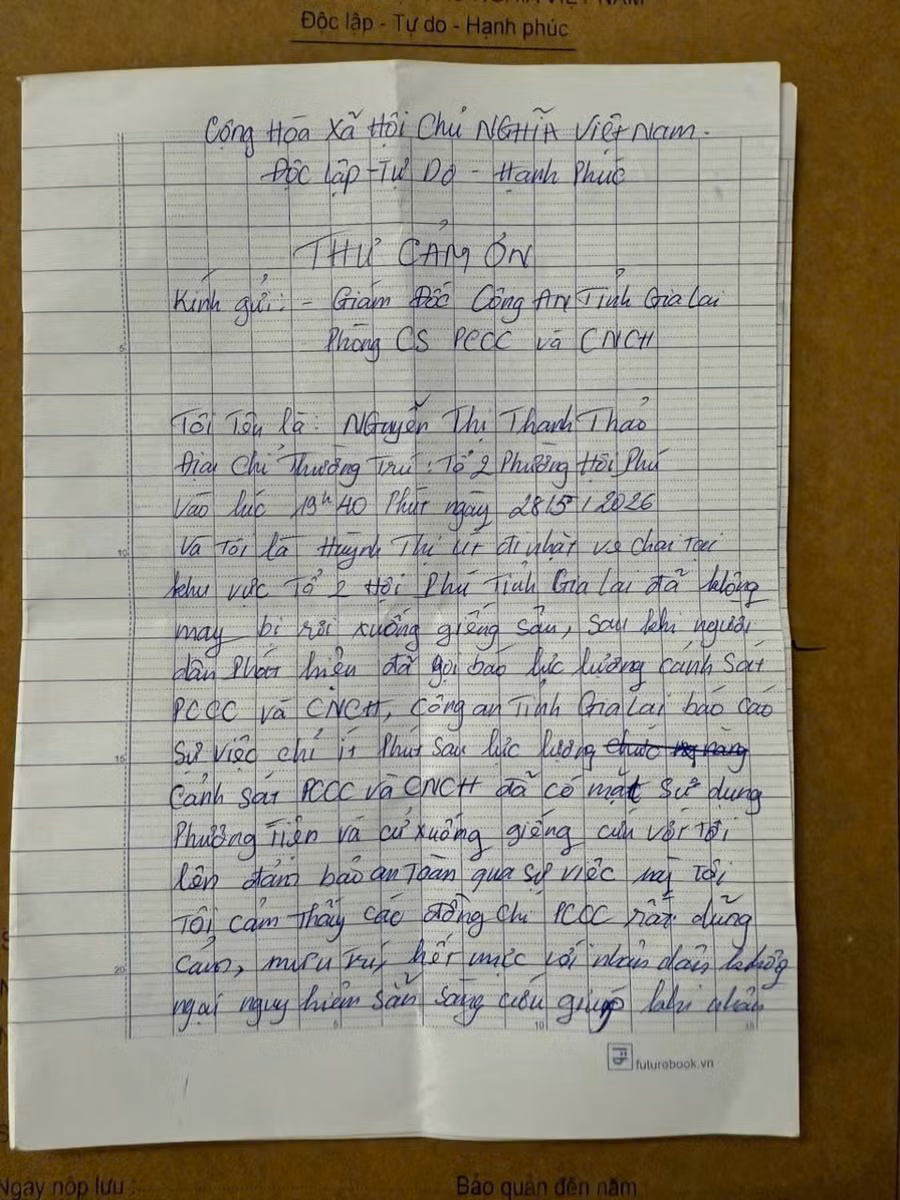 NGHĨA VIỆT NAM
Độc lập - Tự do - Hạnh phúc
Cộng Hòa Xã Hội Chủ NGHĨA Việt Nam.
Độc lập - Tự Do - Hạnh Phúc
THƯ CẢM ƠN
Kính gửi: - Giám Đốc Công An Tỉnh Gia Lai
Phòng CS PCCC và CNCH
5
Tôi Tên là: Nguyễn Thị Thanh Thảo
Địa Chỉ Thường Trú: Tổ 2 Phường Hội Phú
Vào lúc 19h 40 Phút ngày 28/5/2026
10
Và Tôi là Huỳnh Thị Út đi nhặt ve chai Tại
khu vực Tổ 2 Hội Phú Tỉnh Gia Lai đã không
may bị rơi xuống giếng sâu, sau khi người
dân Phát hiện đã gọi báo lực lượng cảnh Sát
PCCC và CNCH, Công an Tỉnh Gia Lai báo cáo
15
Sự việc chỉ ít Phút sau lực lượng
Cảnh Sát PCCC và CNCH đã có mặt Sử dụng
Phương Tiện và cử xuống giếng cứu vớt Tôi
lên đảm bảo an Toàn qua sự việc này Tôi
Tôi cảm Thấy các đồng chí PCCC rất dũng
20
Cảm, mưu trí, hết mực với nhân dân không
ngại nguy hiểm sẵn sàng cứu giúp khi nhân
5 10 15
futurebook.vn
Ngày nộp lưu
Bảo quản đến năm